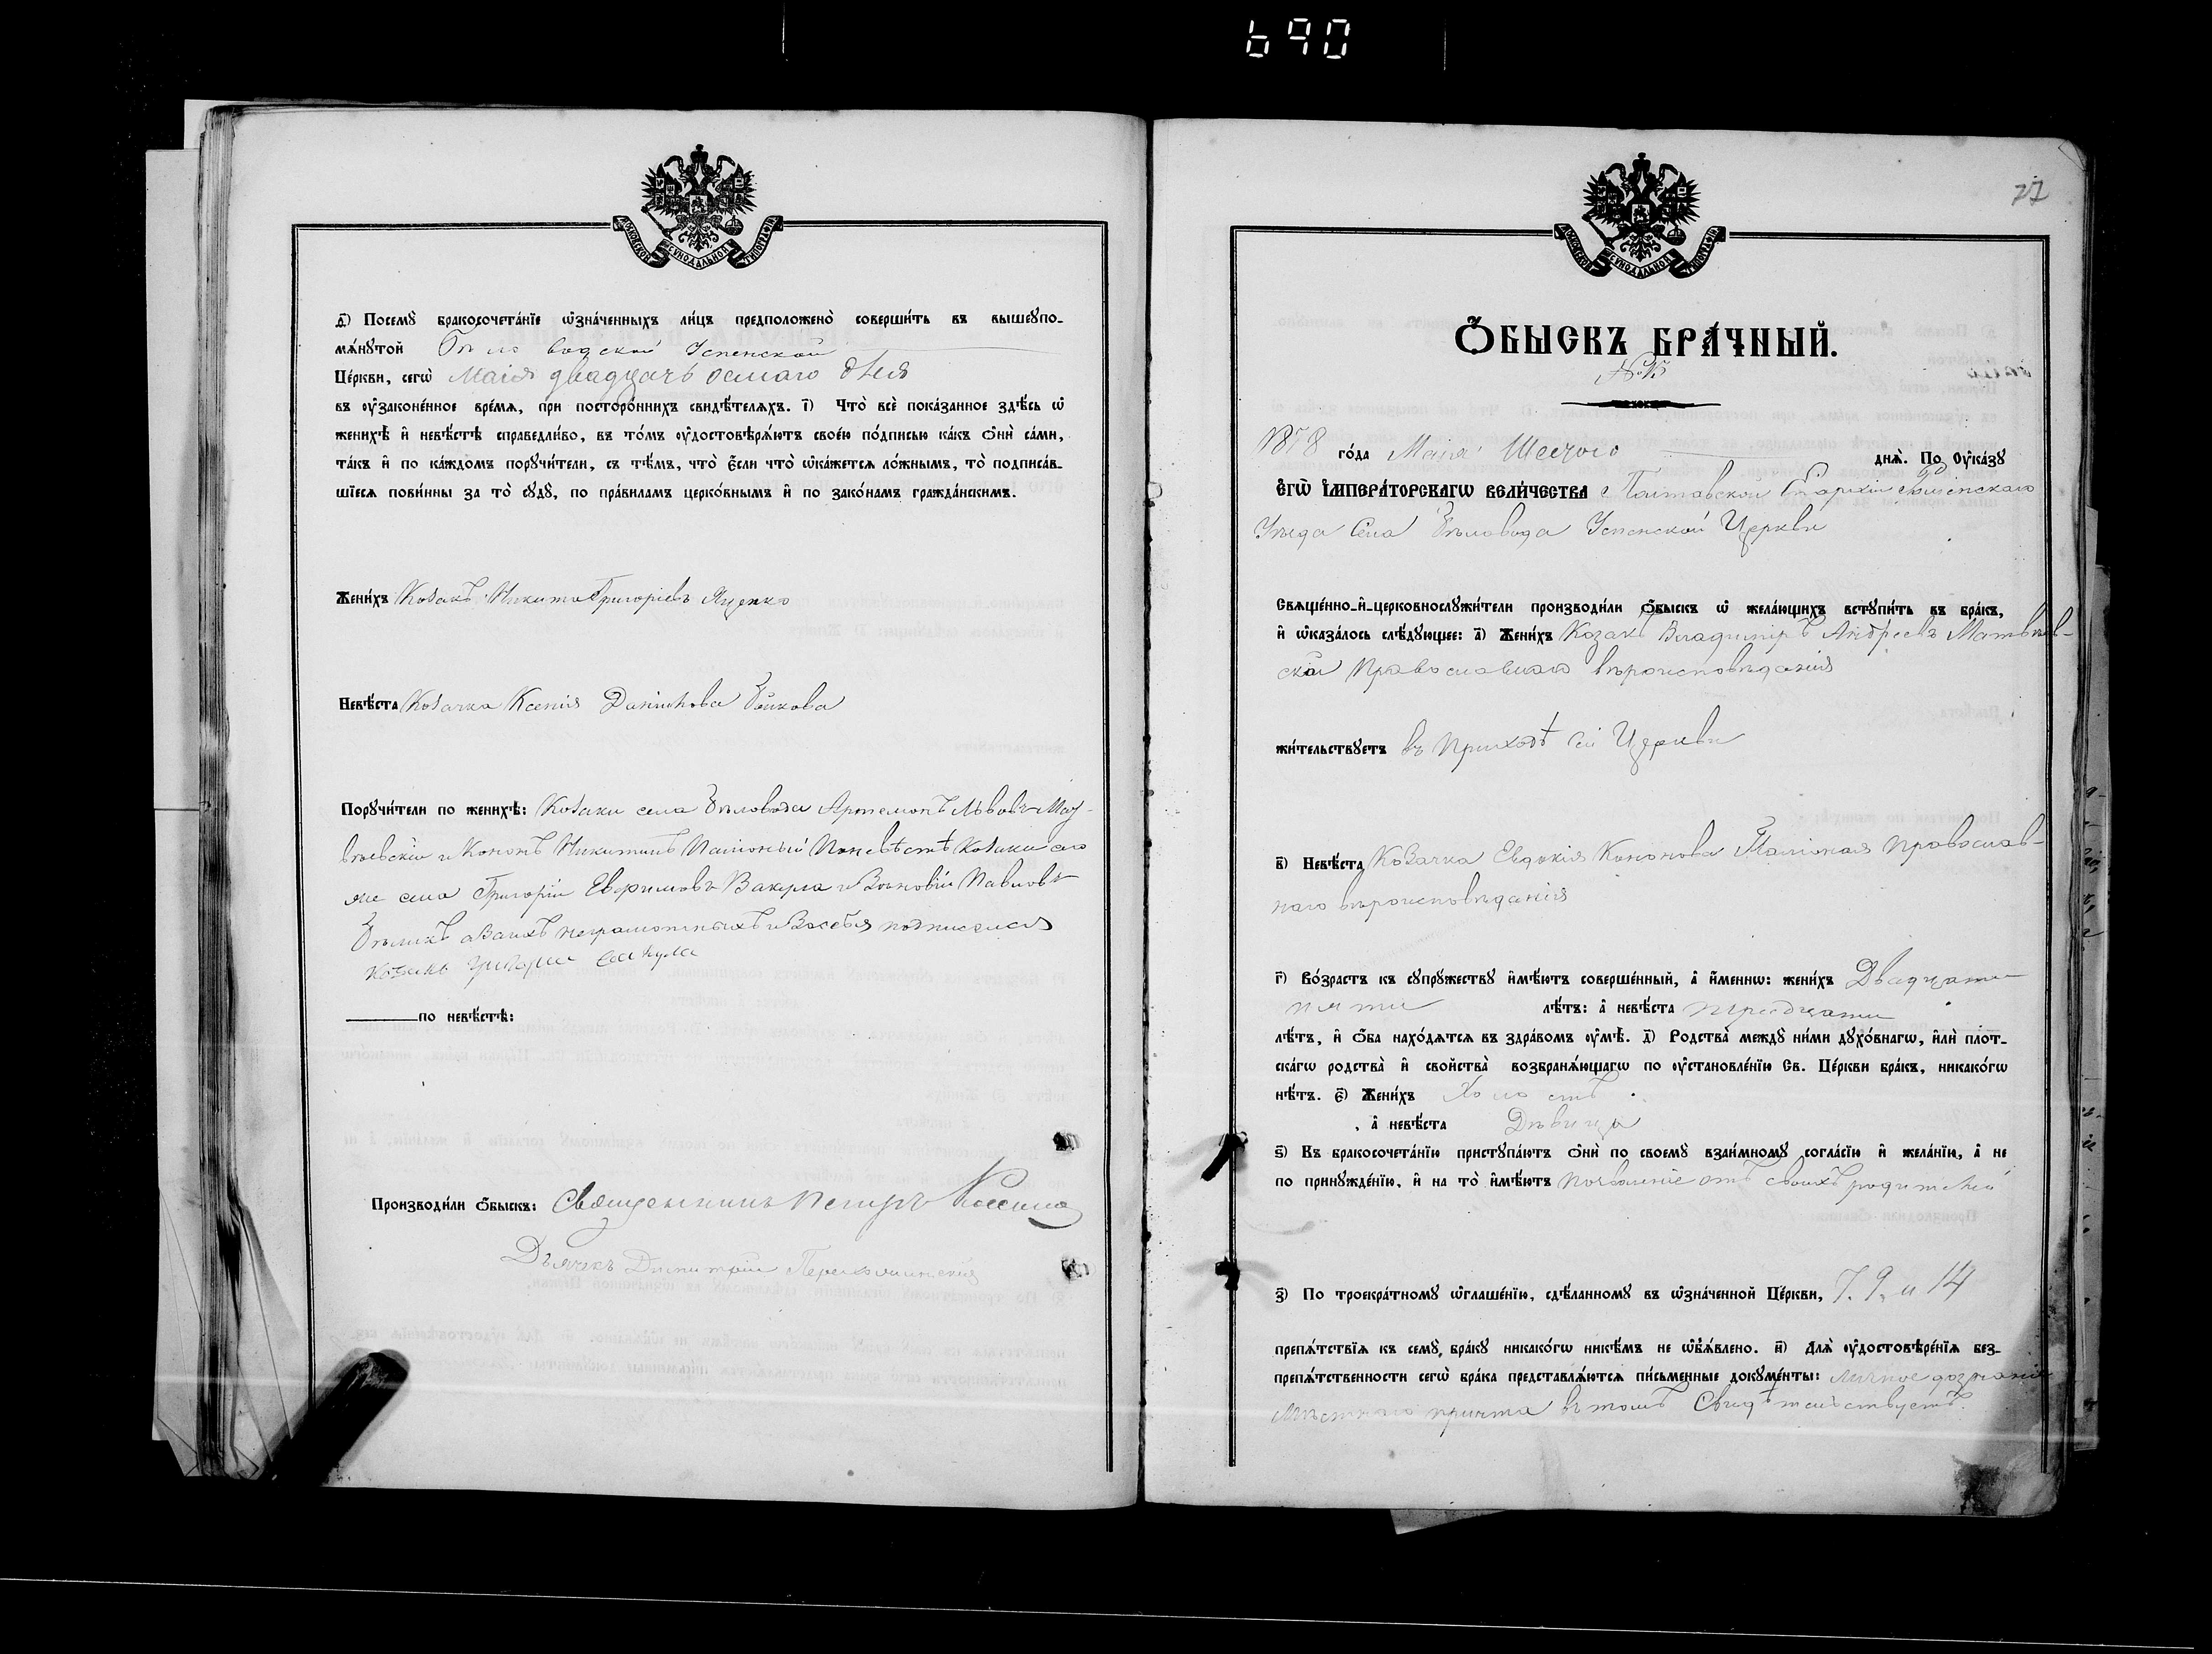 690
МОСКОВСКОЙ СѴНОДАЛЬНОЙ ТИПОГРАФІИ
ѳ҃) Посемꙋ̀ бракосочета́нїе ѡ҆зна́ченныхъ ли́цъ предположено̀ соверши́ть въ вышеꙋпо-
мѧ́нꙋтой Бѣловодской Успенской
Це́ркви, сегѡ̀ Маія двадцать осмаго дня
въ ᲂу҆законе́нное вре́мѧ, при посторо́ннихъ свидѣ́телѧхъ. і҃) Что̀ всѐ пока́занное здѣ́сь ѡ҆
женихѣ̀ и҆ невѣ́стѣ справедли́во, въ то́мъ ᲂу҆достовѣрѧ́ютъ свое́ю по́дписью ка́къ ѻ҆нѝ са́ми,
та́къ и҆ по ка́ждомъ порꙋчи́тели, съ тѣ́мъ, что̀ є҆́сли что̀ ѡ҆ка́жетсѧ ло́жнымъ, то̀ подписа́в-
шїесѧ пови́нны за то̀ сꙋдꙋ̀, по пра́виламъ церко́внымъ и҆ по зако́намъ гражда́нскимъ.
Жени́хъ Козакъ Никита Григоріевъ Яценко
Невѣ́ста Козачка Ксенія Даніилова Бойкова
Порꙋчи́тели по женихѣ̀: Козаки села Бѣловода Артемонъ Львовъ Мат-
вѣевскій и Кононъ Никитинъ Паліоный По невѣстѣ Козаки сего
же села Григорій Евфимовъ Вакула и Зѣновій Павловъ
Бѣликъ а за ихъ неграмотныхъ и за себя подписался
козакъ Григорій Вакула
по невѣ́стѣ:
Производи́ли ѻ҆́быскъ: Священникъ Петръ
Дьячекъ Димитрій
77
МОСКОВСКОЙ СѴНОДАЛЬНОЙ ТИПОГРАФІИ
Ѻ҆́БЫСКЪ БРА́ЧНЫЙ.
№ 15
1878 го́да Маія Шестого днѧ̀. По Оу҆ка́зꙋ
Є҆ГѠ̀ И҆МПЕРА́ТОРСКАГѠ ВЕЛИ́ЧЕСТВА Полтавской Епархіи Роменскаго
Уѣзда Села Бѣловода Успенской Церкви
Свѧще́нно-и҆-церковнослꙋжи́тели производи́ли ѻ҆́быскъ ѡ҆ жела́ющихъ встꙋпи́ть въ бра́къ,
и҆ ѡ҆каза́лось слѣ́дꙋющее: а҃) Жени́хъ Козакъ Владиміръ Андреевъ Матвѣев-
скій Православнаго вѣроисповѣданія
жи́тельствꙋетъ въ приходѣ сей Церкви
в҃) Невѣ́ста Козачка Евдокія Кононова Паліоная православ-
наго вѣроисповѣданія
г҃) Во́зрастъ къ сꙋпрꙋ́жествꙋ и҆мѣ́ютъ соверше́нный, а҆ и҆́меннѡ: жени́хъ Двадцати
пяти лѣ́тъ: а҆ невѣ́ста тридцати
лѣ́тъ, и҆ ѻ҆́ба нахо́дѧтсѧ въ здра́вомъ ᲂу҆мѣ̀. д҃) Родства̀ междꙋ̀ ни́ми дꙋхо́внагѡ, и҆лѝ пло́т-
скагѡ родства̀ и҆ свойства̀ возбранѧ́ющагѡ по ᲂу҆становле́нїю Св. Це́ркви бра́къ, никако́гѡ
нѣ́тъ. є҃) Жени́хъ Холостъ
а҆ невѣ́ста Дѣвица
ѕ҃) Къ бракосочета́нїю пристꙋпа́ютъ ѻ҆нѝ по своемꙋ̀ взаи́мномꙋ согла́сїю и҆ жела́нїю, а҆ не
по принꙋжде́нїю, и҆ на то̀ и҆мѣ́ютъ позволеніе отъ своихъ родителей
з҃) По троекра́тномꙋ ѡ҆глаше́нїю, сдѣ́ланномꙋ въ ѡ҆зна́ченной Це́ркви, 7, 9, и 14
препѧ́тствїѧ къ семꙋ̀ бра́кꙋ никако́гѡ никѣ́мъ не ѡ҆б̾ѧ́влено. и҃) Длѧ̀ ᲂу҆достовѣре́нїѧ без-
препѧ́тственности сегѡ̀ бра́ка представлѧ́ютсѧ пи́сьменные докꙋме́нты: личное дознаніе
мѣстнаго причта въ томъ свидѣтельствуетъ.